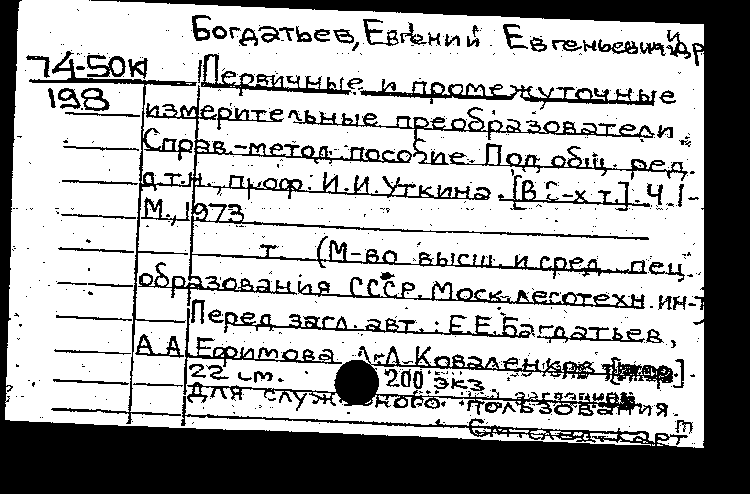 Богдатьев, Евгений Евгеньевич и др
74-50к Первичные и промежуточные
198 измерительные преобразователи.
Справ.-метод. пособие. Под общ. ред.
д.т.н., проф. И.И. Уткина. [В 2-х т.]. Ч. 1-
М., 1973
т. (М-во высш. и сред. спец.
образования СССР. Моск. лесотехн. ин-т
Перед загл. авт.: Е.Е. Багдатьев,
А.А. Ефимова Коваленков
22 см. 200 экз.
Для служебного пользования.
См. след. карт